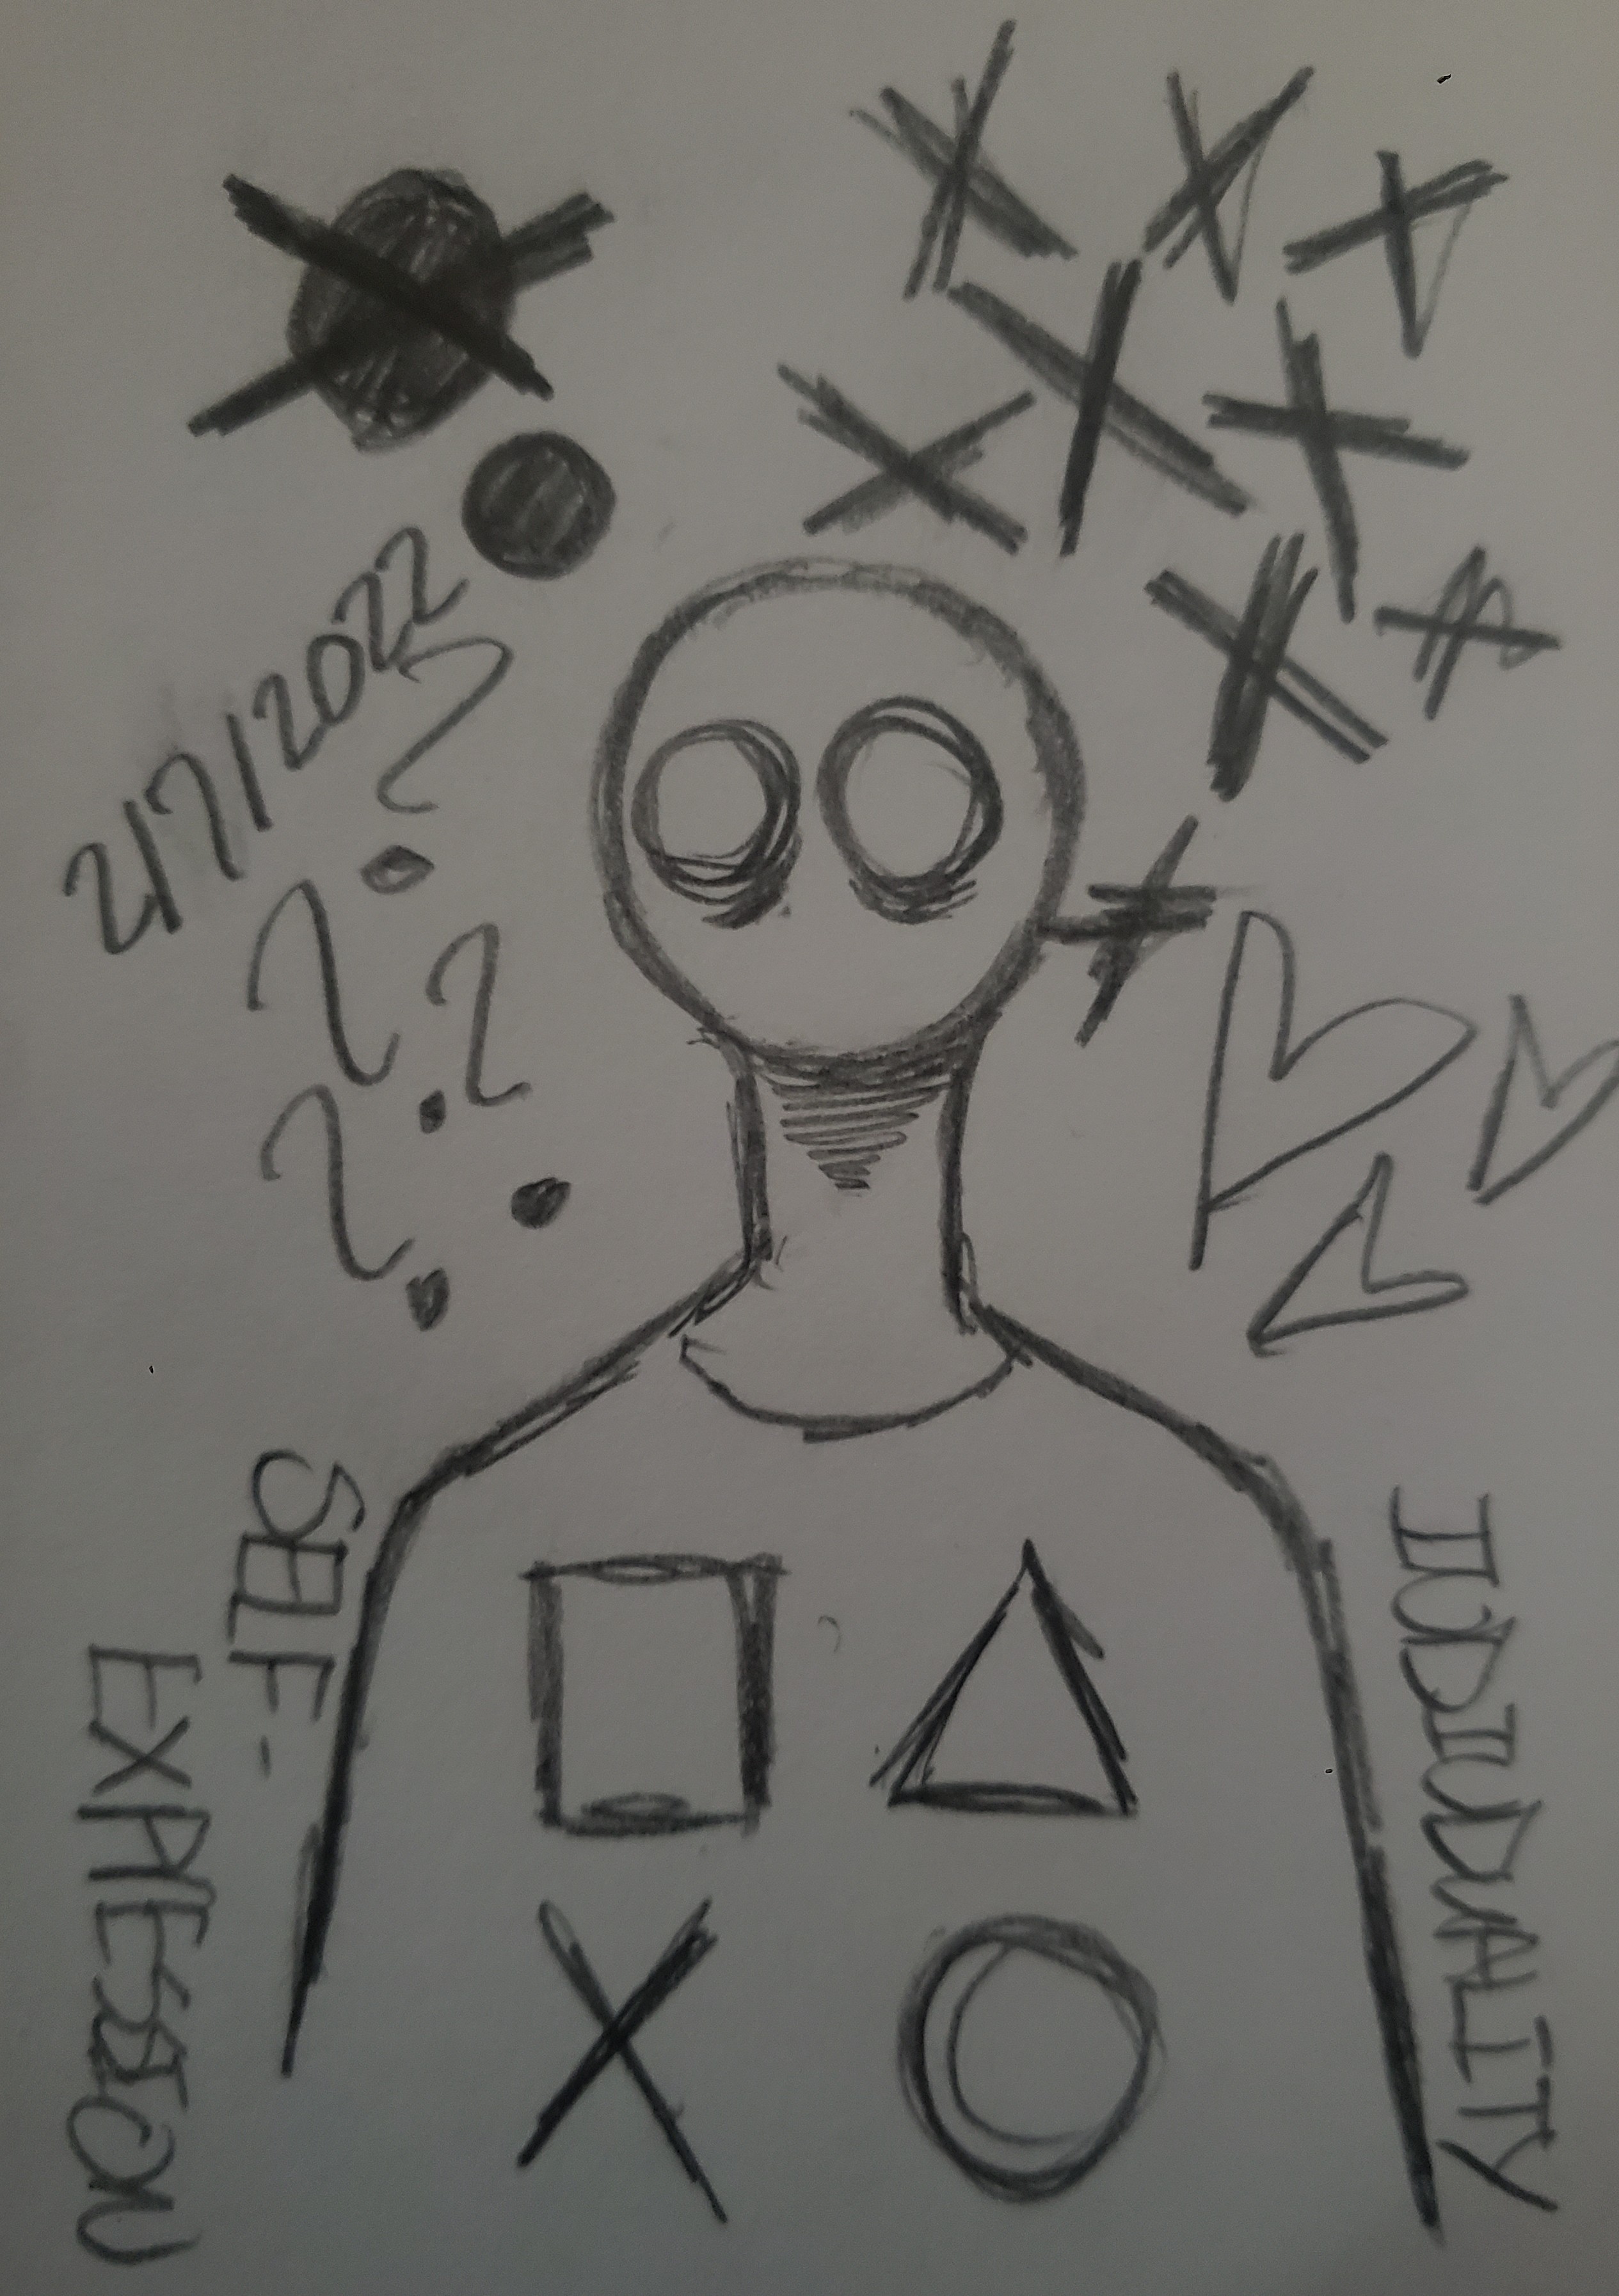 2/7/2022
? ? ? ?
SELF-
EXPRESSION
INDIVIDUALITY